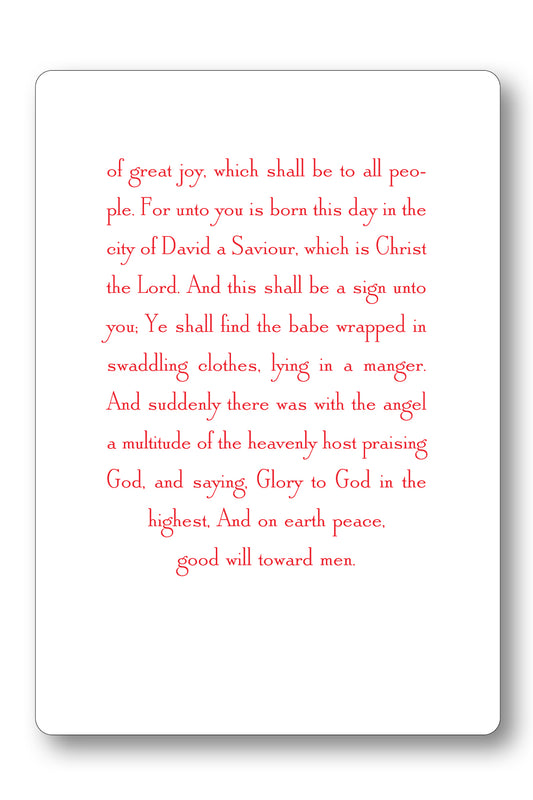 of great joy, which shall be to all peo-
ple. For unto you is born this day in the
city of David a Saviour, which is Christ
the Lord. And this shall be a sign unto
you; Ye shall find the babe wrapped in
swaddling clothes, lying in a manger.
And suddenly there was with the angel
a multitude of the heavenly host praising
God, and saying, Glory to God in the
highest, And on earth peace,
good will toward men.